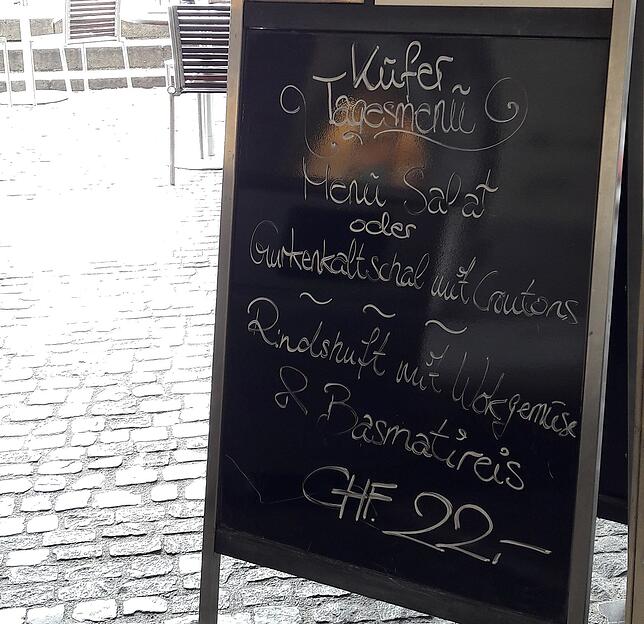 Küfer
Tagesmenü
Menü Salat
oder
Gurkenkaltschal mit Croutons
~ ~ ~
Rindshuft mit Wokgemüse
& Basmatireis
CHF. 22,-